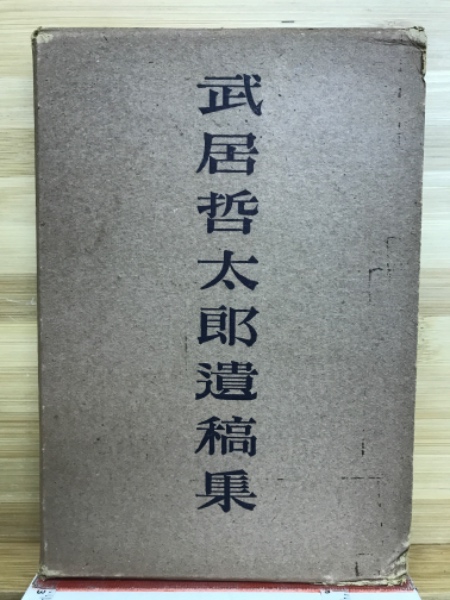 武居哲太郎遺稿集